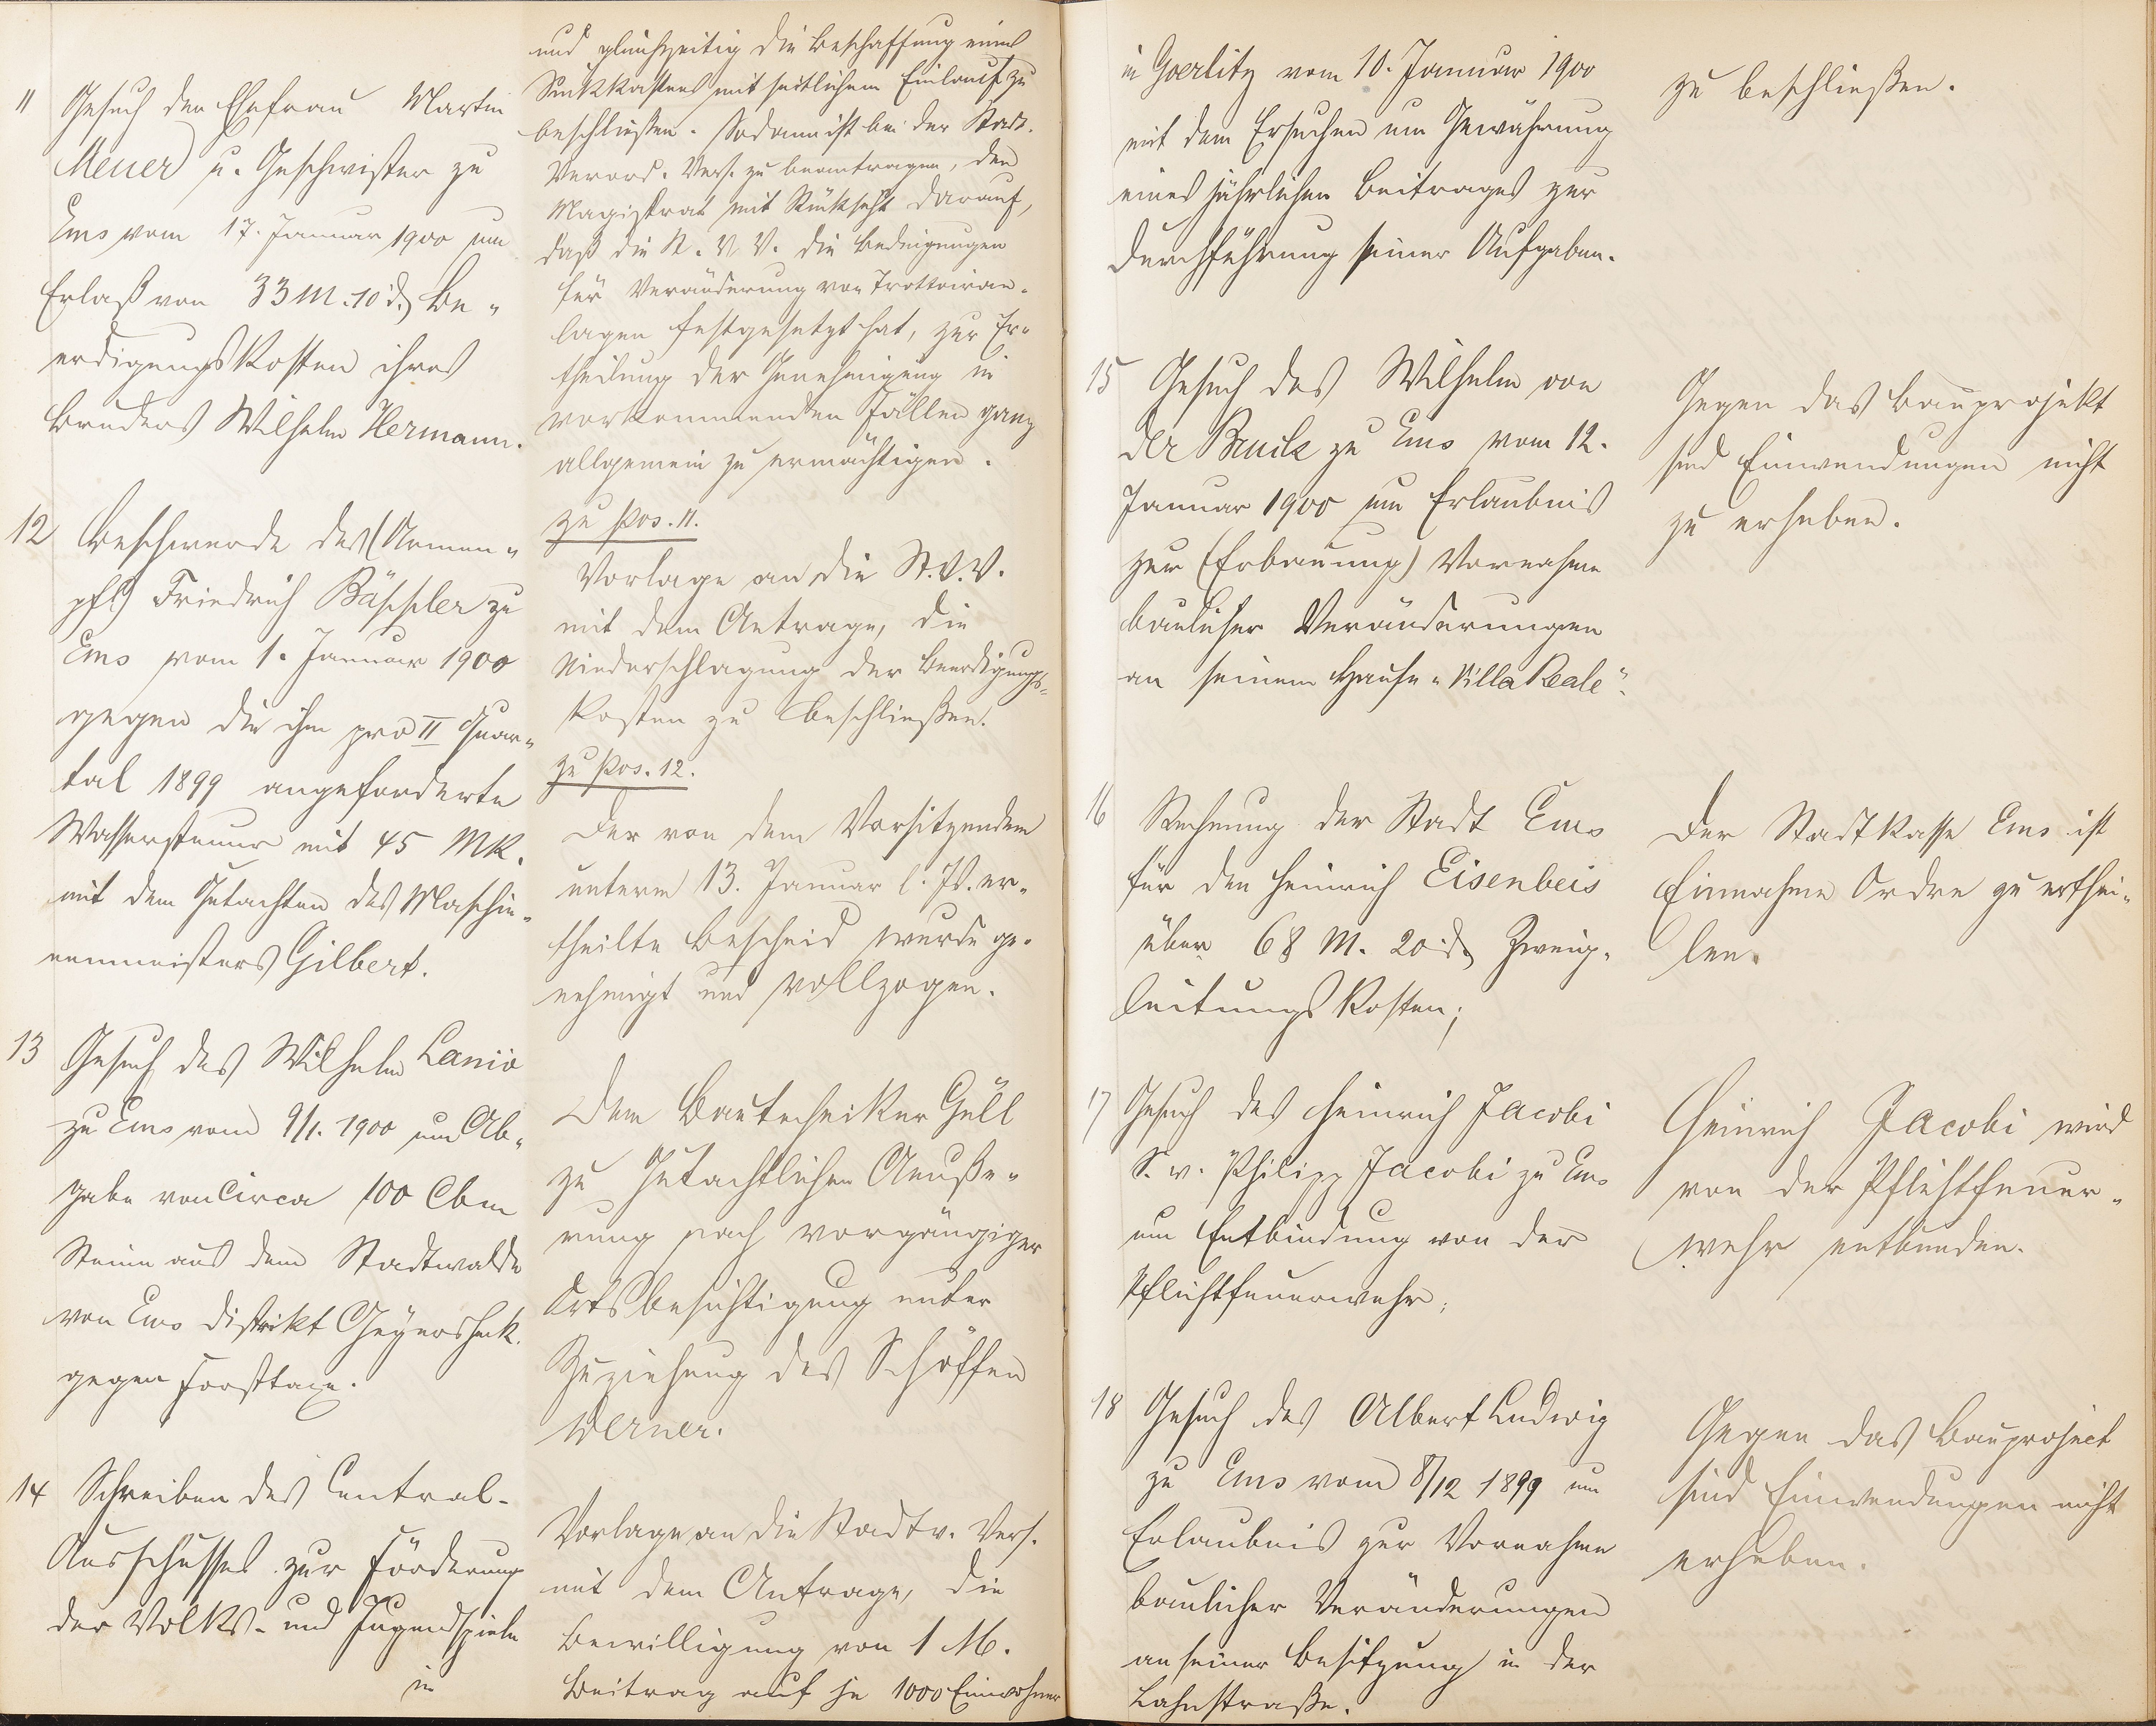 11 Gesuch der Ehefrau Martin
Meuer u. Geschwister zu
Ems vom 17. Januar 1900 um
Erlaß von 33 M. 10 d. Be-
erdigungskosten ihres
Bruders Wilhelm Hermann.
12 Beschwerde des (Armen-
pfl) Friedrich Bässler zu
Ems vom 1. Januar 1900
gegen die ihm pro II Quar-
tal 1899 angeforderte
Wassersteuer mit 45 Mk.
mit dem Gutachten des Maschi-
nenmeisters Gilbert.
13 Gesuch des Wilhelm Lanio
zu Ems vom 9/1. 1900 um Ab-
gabe von circa 100 Cbm
Steine aus dem Stadtwalde
von Ems Distrikt
gegen Forsttaxe.
14 Schreiben des Central-
Ausschusses zur Förderung
der Volks- und Jugendspiele
in
und gleichzeitig die Beschaffung eines
Sinkkastens mit seitlichem Einlauf zu
beschließen. Sodann ist bei der Stadt-
Verord. Vers. zu beantragen, den
Magistrat mit Rücksicht darauf,
daß die St. V. V. die Bedingungen
für Veränderung von Trottoiran-
lagen festgesetzt hat, zur Er-
theilung der Genehmigung in
vorkommenden Fällen ganz
allgemein zu ermächtigen.
zu Pos. 11.
Vorlage an die St. V. V.
mit dem Antrage, die
Niederschlagung der Beerdigungs-
kosten zu beschließen.
zu Pos. 12.
Der von dem Vorsitzenden
unterm 13. Januar l. Js. er-
theilte Bescheid wurde ge-
nehmigt und vollzogen.
Dem Bautechniker Gell
zu gutachtlichen Aeuße-
rung nach vorgängiger
Ortsbesichtigung unter
Zuziehung des Schöffen
Werner.
Vorlage an die Stadtv. Vers.
mit dem Antrage, die
Bewilligung von 1 M.
Beitrag auf je 1000 Einwohner
in Goerlitz vom 10. Januar 1900
mit dem Ersuchen um Gewährung
eines jährlichen Beitrages zur
Durchführung seiner Aufgaben.
15 Gesuch des Wilhelm von
der Bruck zu Ems vom 12.
Januar 1900 um Erlaubnis
zur (Erbauung) Vornahme
baulicher Veränderungen
an seinem Hause "Villa Beale".
16 Rechnung der Stadt Ems
für den Heinrich Eisenbeis
über 68 M. 20 d. Zweig-
leitungskosten;
17 Gesuch des Heinrich Jacobi
S. v. Philipp Jacobi zu Ems
um Entbindung von der
Pflichtfeuerwehr;
18 Gesuch des Albert Ludwig
zu Ems vom 8/12 1899 um
Erlaubnis zur Vornahme
baulicher Veränderungen
an seiner Besitzung in der
Lahnstraße.
zu beschließen.
Gegen das Bauprojekt
sind Einwendungen nicht
zu erheben.
Der Stadtkasse Ems ist
Einnahme Ordre zu erthei-
len.
Heinrich Jacobi wird
von der Pflichtfeuer-
wehr entbunden.
Gegen das Bauproject
sind Einwendungen nicht
erheben.